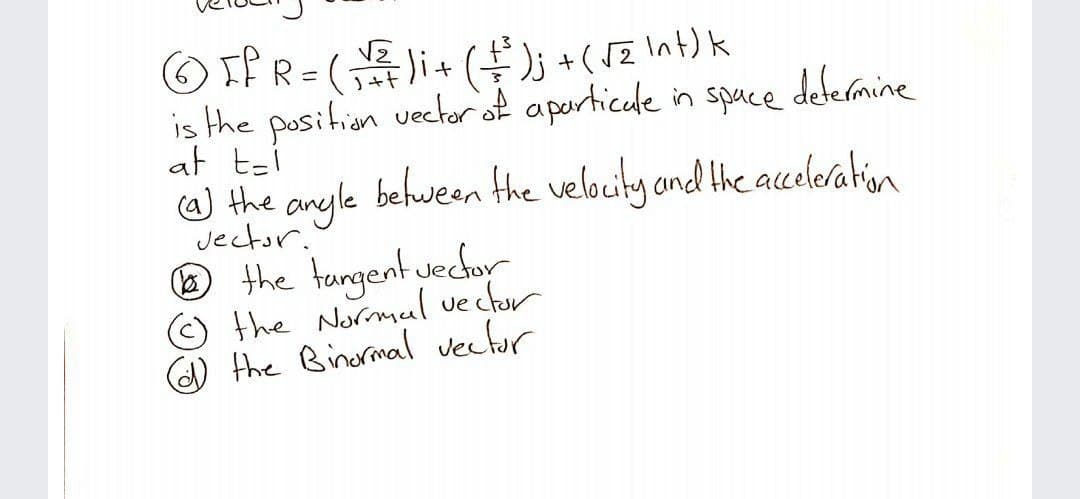 ⑥ If R = (√2/1+t)i + (t³/3)j + (√2 lnt)k
is the position vector of aparticule in space determine
at t=1
(a) the angle between the velocity and the acceleration
vector.
ⓑ the tangent vector
ⓒ the Normal vector
ⓓ the Binormal vector